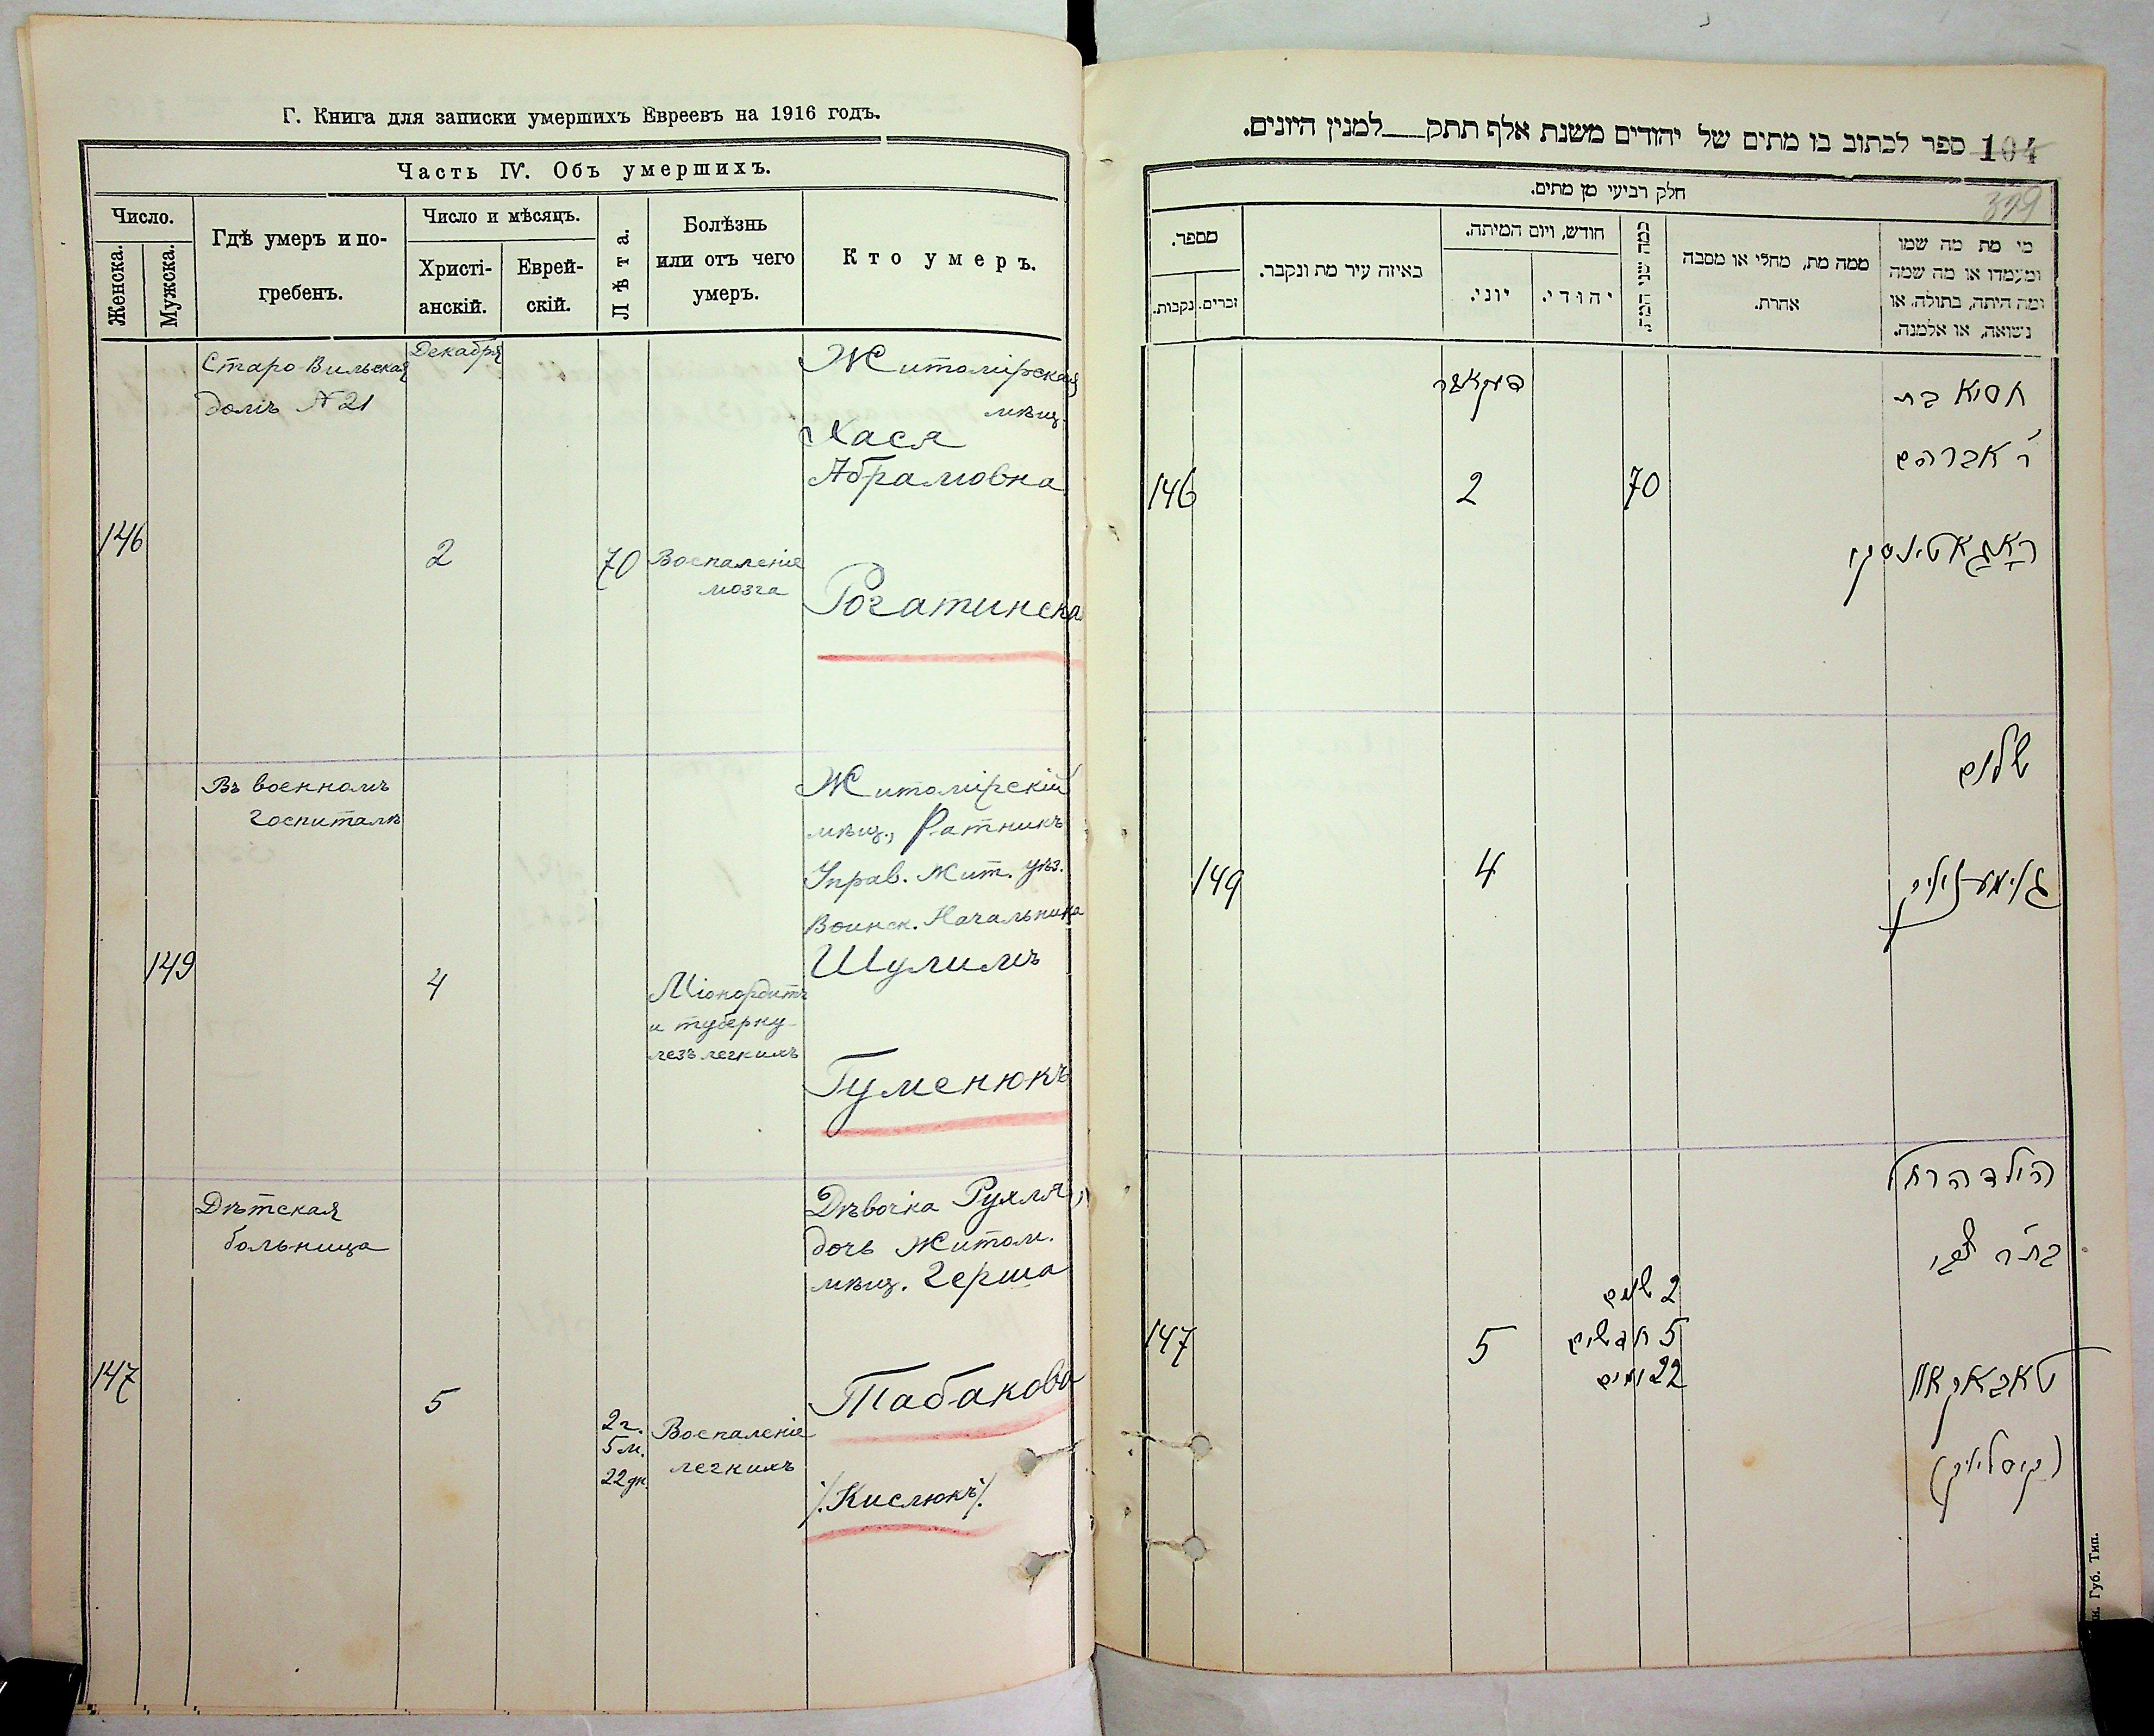 Г. Книга для записки умершихъ Евреевъ на 1916 годъ.
Часть IV. Объ умершихъ.
Число.
Женска.
Мужска.
Гдѣ умеръ и по-
гребенъ.
Число и мѣсяцъ.
Христі-
анскій.
Еврей-
скій.
Лѣта.
Болѣзнь
или отъ чего
умеръ.
Кто умеръ.
146
Старо-Вильская
домъ № 21
Декабря
2
70
Воспаленіе
мозга
Житомірская
мѣщ.
Хася
Абрамовна
Рогатинска
149
Въ военномъ
госпиталѣ
4
Міокордитъ
и туберку-
лезъ легкихъ
Житомірскій
мѣщ., Ратникъ
Управ. Жит. уѣз.
Воинск. Начальника
Шулимъ
Гуменюкъ
147
Дѣтская
больница
5
2 г.
5 м.
22 дн.
Воспаленіе
легкихъ
Дѣвочка Рухля,
дочь Житом.
мѣщ. Герша
Табакова
/.Кислюкъ/.
104
ספר לכתוב בו מתים של יהודים משנת אלף תתק___למנין היונים.
399
חלק רביעי מן מתים.
מספר.
נקבות.
זכרים.
באיזה עיר מת ונקבר.
חודש, ויום המיתה.
יוני.
יהודי.
כמה שני המת.
ממה מת, מחלי או מסבה
אחרת.
מי מת מה שמו
ומעמדו או מה שמה
ומה היתה, בתולה, או
נשואה, או אלמנה.
146
דעקאבר
2
70
חסיא בת
ר' אברהם
ראגאטינסקי
149
4
שלום
גומעניוק
147
5
2 שנים
5 חדשים
22 ימים
הילדה רחל
בת ר' צבי
טאבאקאוו
(קיסליוק)
Губ. Тип.